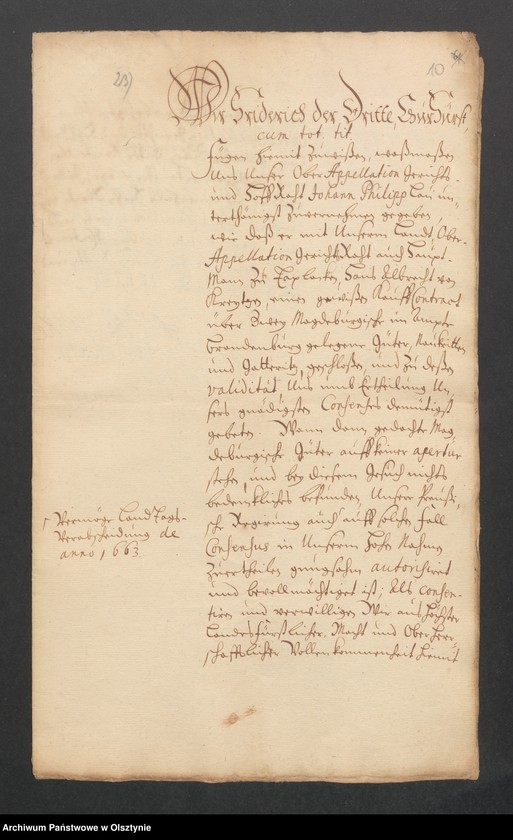 23)
10
Wir Friderich der Dritte, Churfürst,
cum tot. tit.
fügen hiemit zuwißen, waßmaßen
Uns Unser Ober Appellation Gerichts-
und Hoff Raht Johann Philipp Lau un,
terthänigst zuvernehmen gegeben,
wie daß er mit Unserm Landt Ober-
Appellation Gerichts Raht auch Haupt-
Mann zu Taplacken, Hans Albrecht von
Kreytzen, einen gewißen Kauff Contract
über zwey Magdeburgische im Ampte
Brandenburg gelegene Güter,
und geschloßen, und zu deßen
validität Uns umb Ertheilung Un,
sers gnädigsten Consenses demütigst
gebeten. Wann dann gedachte Mag,
deburgische Güter auff keiner apertur
stehen, und bey diesem Gesuch nichts
bedenckliches befunden, Unser Preußi,
sche Regierung auch auff solchen Fall
Consensus in Unserm hohen Nahmen
zuertheilen gnugsahm authorisiret
und bevollmächtiget ist; Als consen-
tiren und verwilligen Wir aus höchster
Landesfürstlicher Macht und Ober Herr,
schafftlicher Vollenkommenheit hiemit
Vermöge Land Tags-
Verabscheidung de
anno 1663
Archiwum Państwowe w Olsztynie